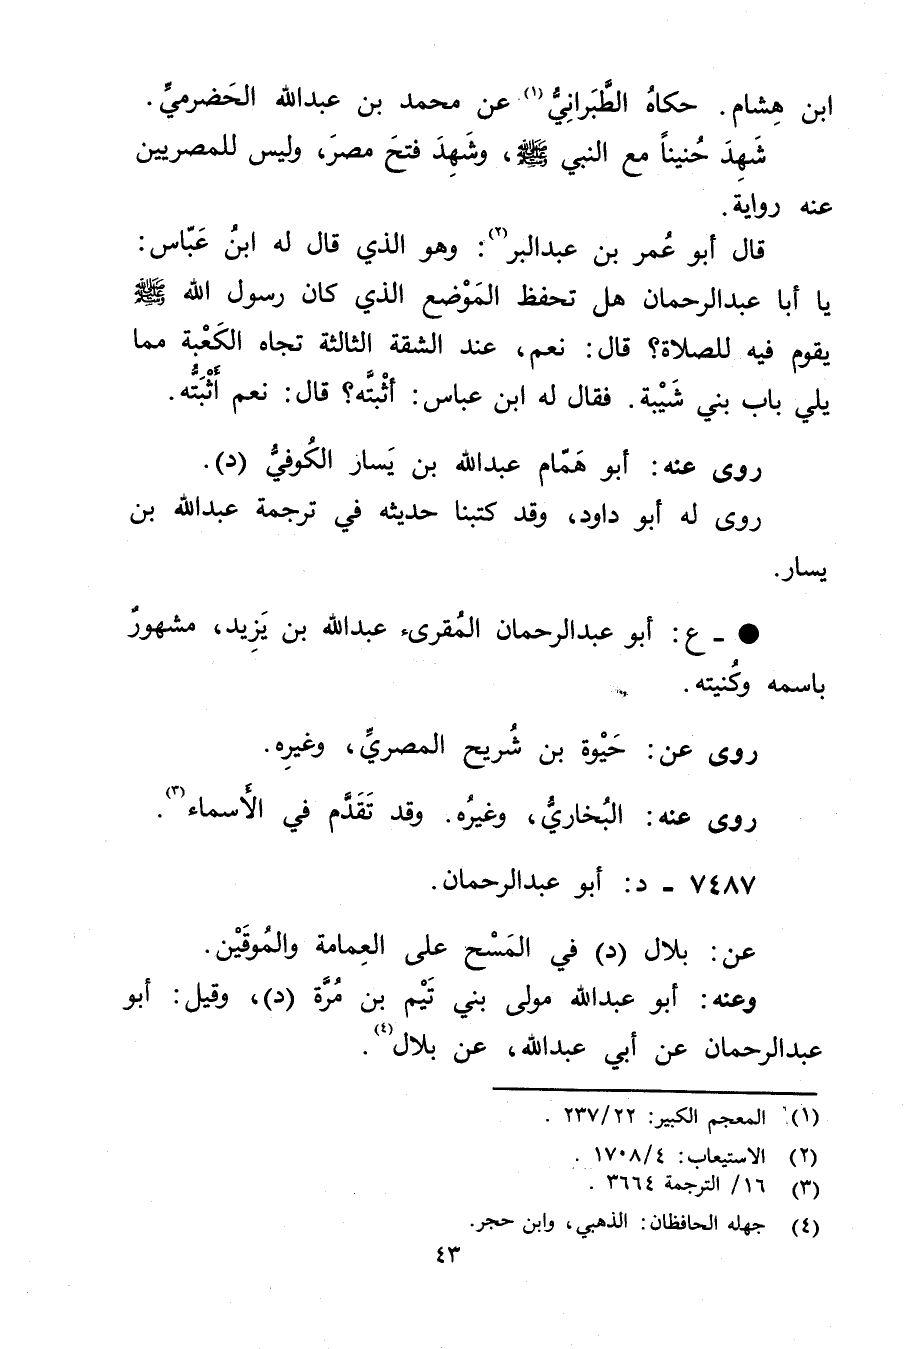 ابن هِشام. حكاهُ الطَّبَرانِيُّ(١) عن محمد بن عبدالله الحَضرميِّ.
شَهِدَ حُنيناً مع النبي ﷺ، وشَهِدَ فتحَ مصرَ، وليس للمصريين
عنه رواية.
قال أبو عُمر بن عبدالبر(٢): وهو الذي قال له ابنُ عَبّاس:
يا أبا عبدالرحمان هل تحفظ المَوْضع الذي كان رسول الله ﷺ
يقوم فيه للصلاة؟ قال: نعم، عند الشقة الثالثة تجاه الكَعْبة مما
يلي باب بني شَيْبة. فقال له ابن عباس: أثْبتَّه؟ قال: نعم أَثْبَتُّه.
روى عنه: أبو هَمّام عبدالله بن يَسار الكُوفيُّ (د).
روى له أبو داود، وقد كتبنا حديثه في ترجمة عبدالله بن
يسار.
● ـ ع: أبو عبدالرحمان المُقرىء عبدالله بن يَزِيد، مشهورٌ
باسمه وكُنيته.
روى عن: حَيْوة بن شُريح المصريِّ، وغيرِه.
روى عنه: البُخاريُّ، وغيرُه. وقد تَقَدَّم في الأَسماء(٣).
٧٤٨٧ ـ د: أبو عبدالرحمان.
عن: بلال (د) في المَسْح على العِمامة والمُوقَيْن.
وعنه: أبو عبدالله مولى بني تَيْم بن مُرَّة (د)، وقيل: أبو
عبدالرحمان عن أبي عبدالله، عن بلال(٤).
(١) المعجم الكبير: ٢٢/ ٢٣٧.
(٢) الاستيعاب: ٤/ ١٧٠٨.
(٣) ١٦/ الترجمة ٣٦٦٤.
(٤) جهله الحافظان: الذهبي، وابن حجر.
٤٣